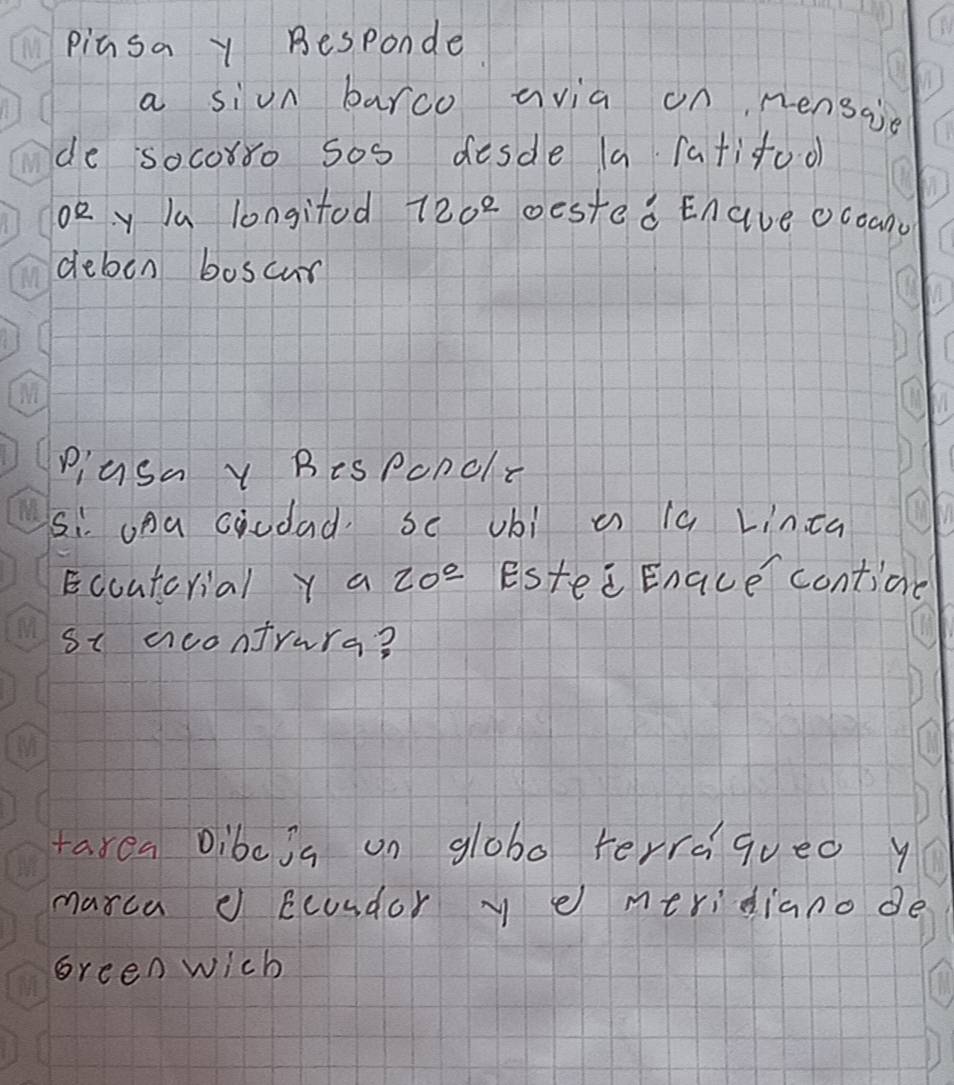 Piensa y Responde.
a si un barco envia un mensaje
de socorro SOS desde la latitud
0º y la longitud 120º oeste ¿ En que oceano
deben buscar
Piensa y Responde
Si una ciudad se ubi en la Linea
Ecuatorial y a 20º Este ¿ En que contiene
se encontrara?
tarea Dibuja un globo terráqueo y
marca el Ecuador y el meridiano de
Greenwich